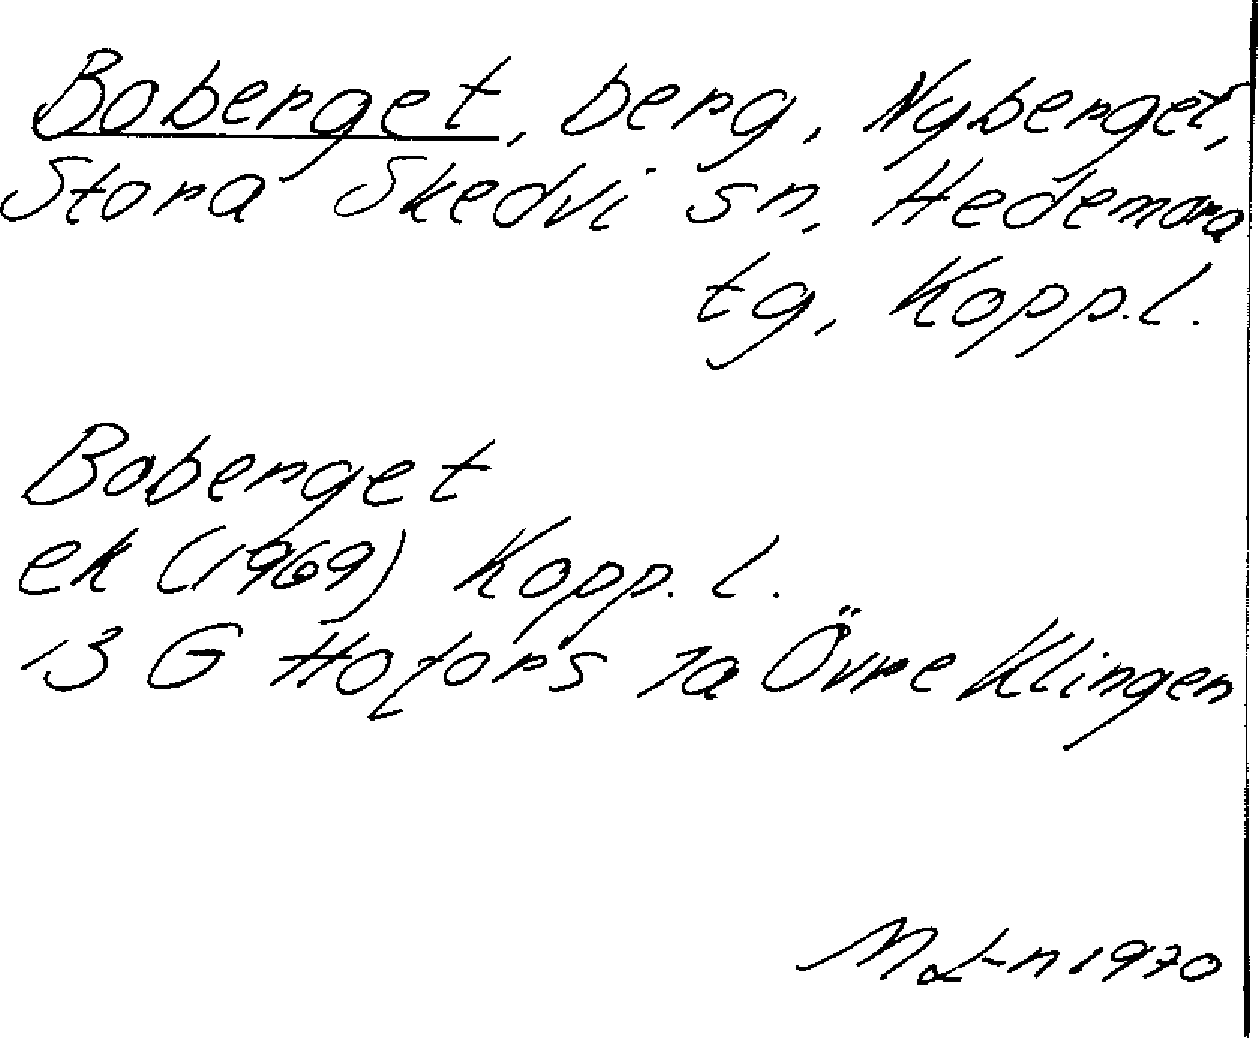 Boberget, berg, Nyberget,
Stora Skedvi sn, Hedemora
tg, Kopp.l.
Boberget
ek (1969) Kopp. l.
13 G Hofors 7a Övre Klingen
M L-n 1970